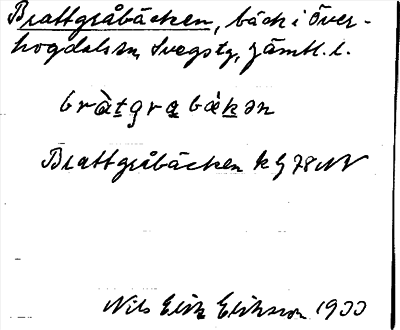 Brattgråbäcken, bäck i Över-
hogdals sn, Svegs tg, Jämtl. l.
bràtgrabäkən
Brattgråbäcken k G 78 NV
Nils Erik Eriksson 1933